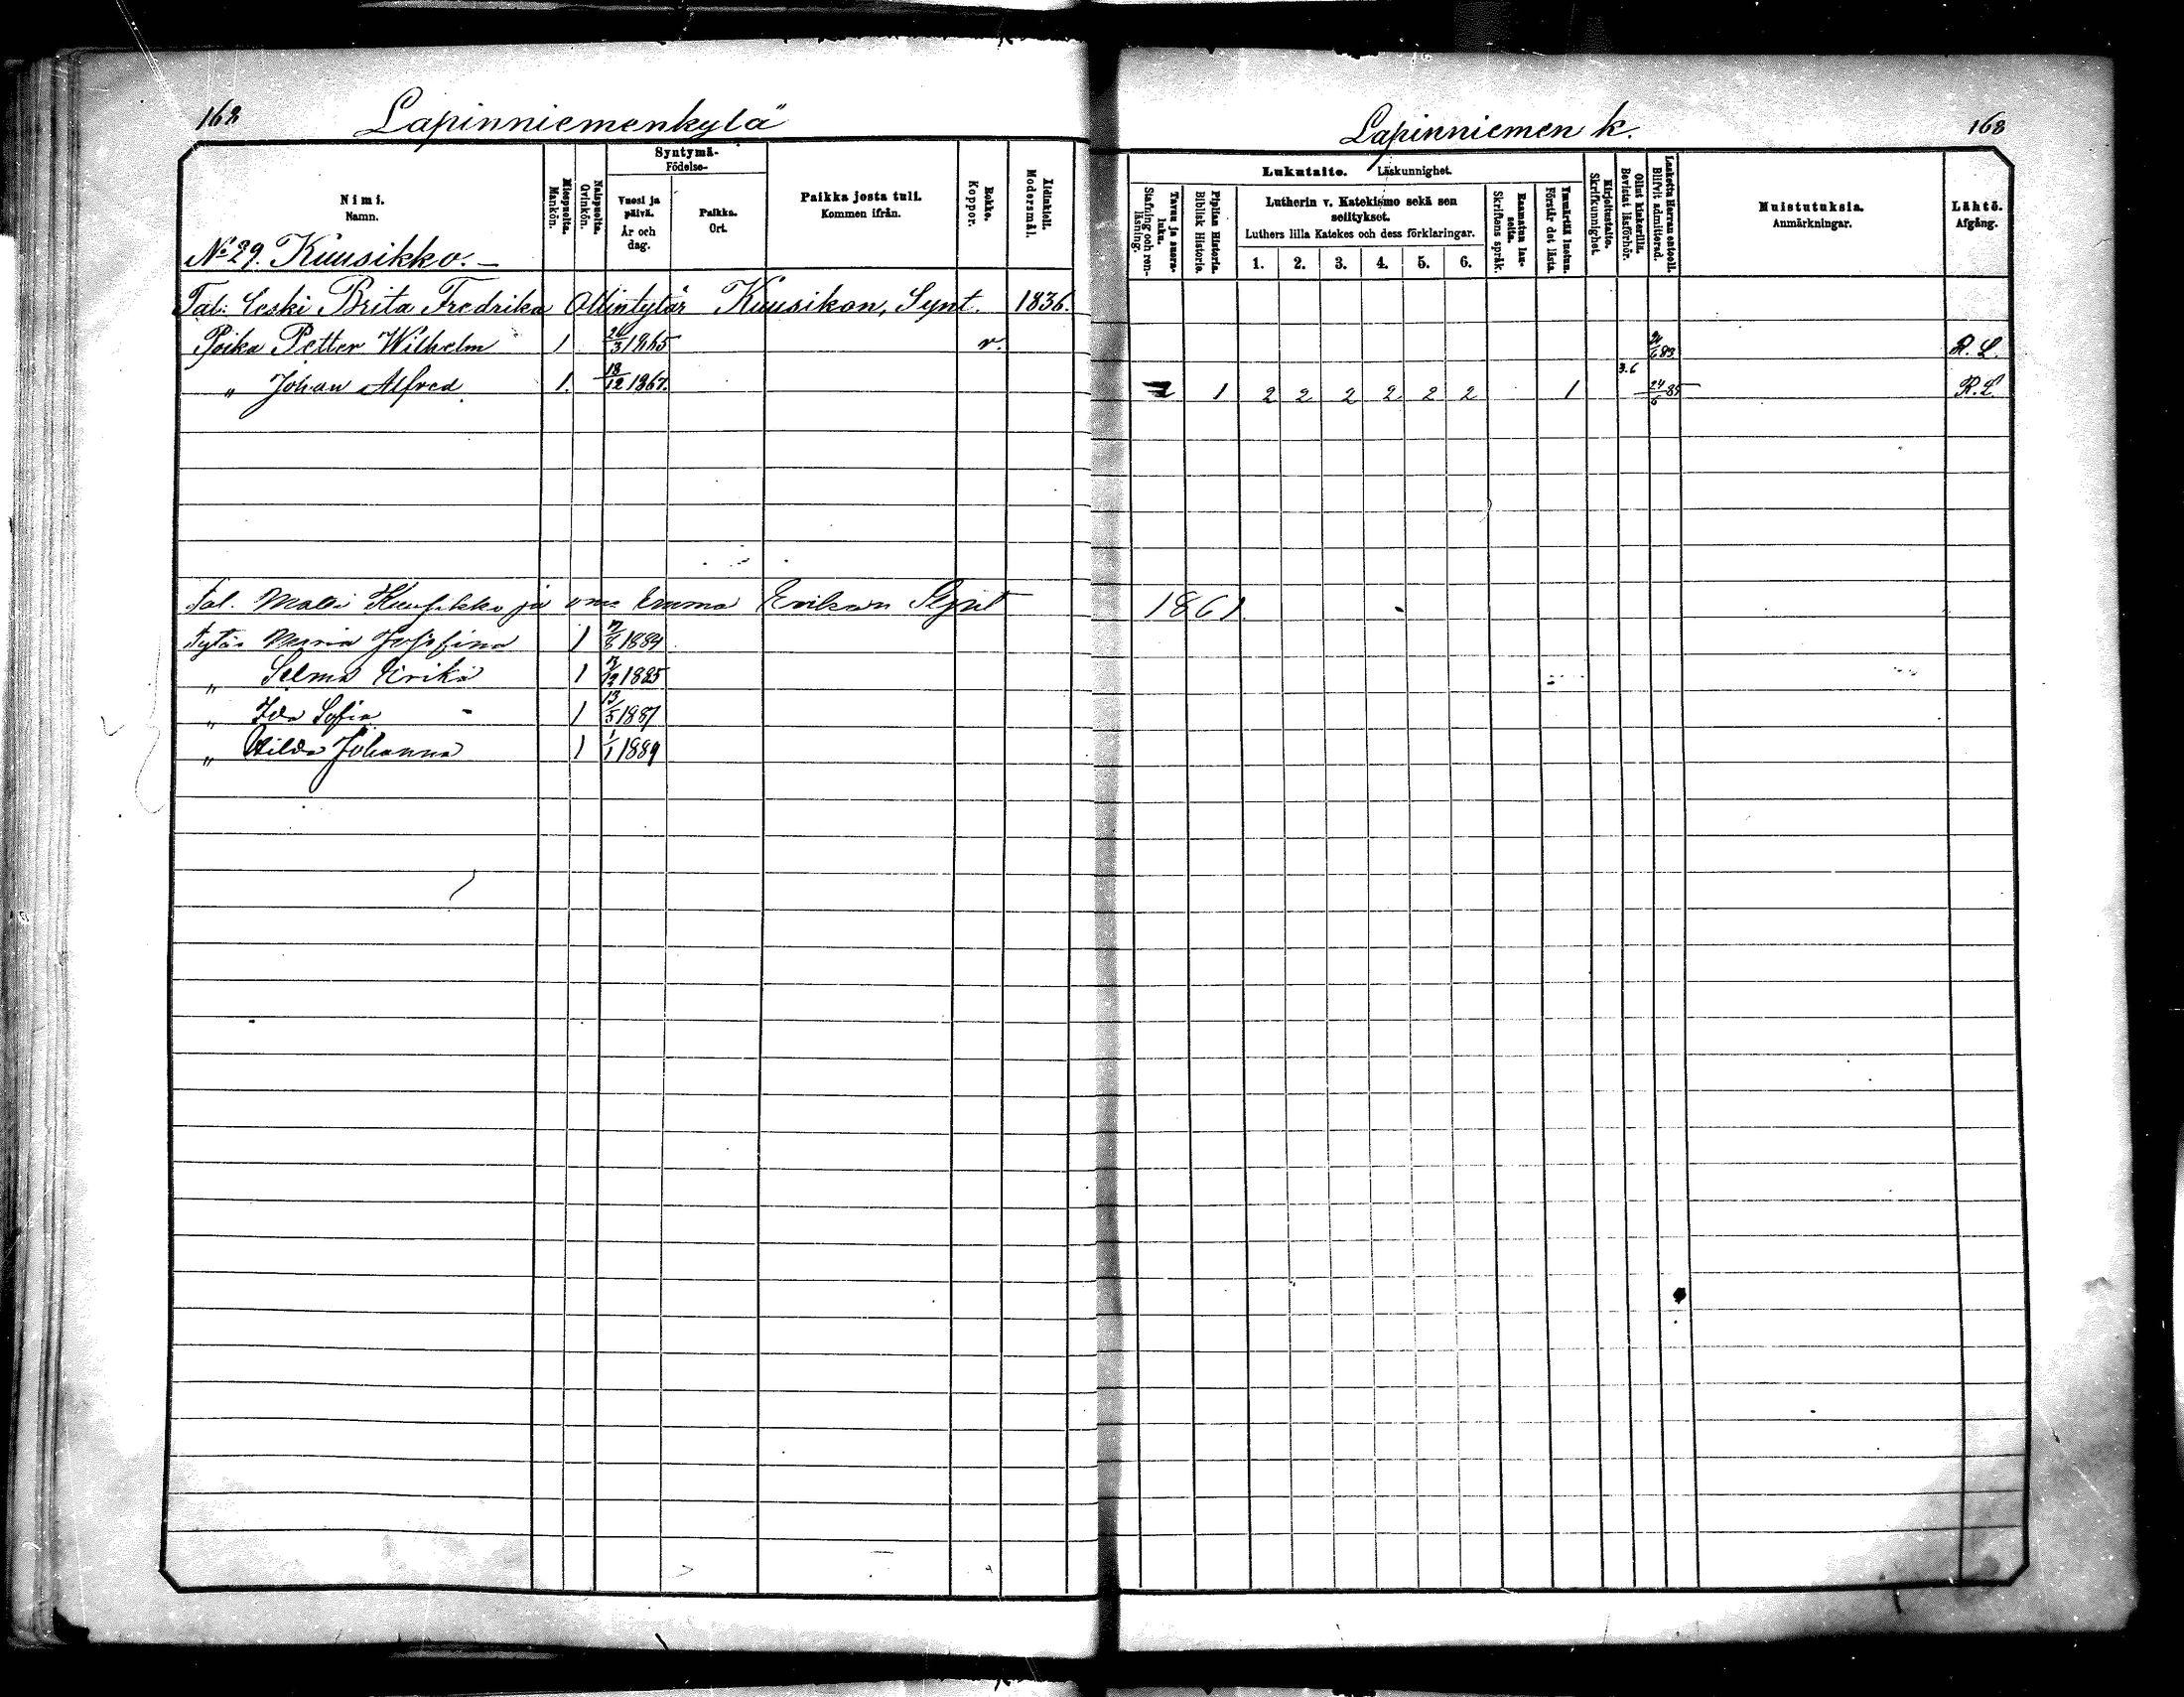 168 Lapinniemenkylä
Nimi.
Namn.
Miespuolia.
Mankön.
Naispuolia.
Qvinkön.
Syntymä-
Födelse-
Vuosi ja
päivä.
År och
dag.
Paikka.
Ort.
Paikka josta tuli.
Kommen ifrån.
Rokko.
Koppor.
Äidinkieli.
Modersmål.
No 29. Kuusikko. —
Tal: Leski Brita Fredrika Ollintytär Kuusikon, Synt. 1836.
Poika Petter Wilhelm 1 26/3 1865 r.
" Johan Alfred 1. 18/12 1867.
Tal. Matti Kuusikko ja vmo Emma Erikson Synt
Tytär Maria Josefina 1 1884
" Selma Erika 1 1885
" Ida Sofia 1 13/5 1887
" Hilda Johanna 1 1/1 1889
Lapinniemen k. 168
Lukutaito. Läskunnighet.
Tavuu ja suora-
luku.
Stafning och ren-
läsning.
Piplian Historia.
Biblisk Historia.
Lutherin v. Katekismo sekä sen
selitykset.
Luthers lilla Katekes och dess förklaringar.
1. 2. 3. 4. 5. 6.
Raamatun lau-
seita.
Skriftens språk.
Ymmärtää luetun.
Förstår det lästa.
Kirjoitustaito.
Skrifkunnighet.
Ollut kinkerillä.
Bevistat läsförhör.
Laskettu Herran ehtooll.
Blifvit admitterad.
Muistutuksia.
Anmärkningar.
Lähtö.
Afgång.
24/6 83 R. L.
3.6
1 2 2 2 2 2 2 1 24/6 85 R. L.
1861.